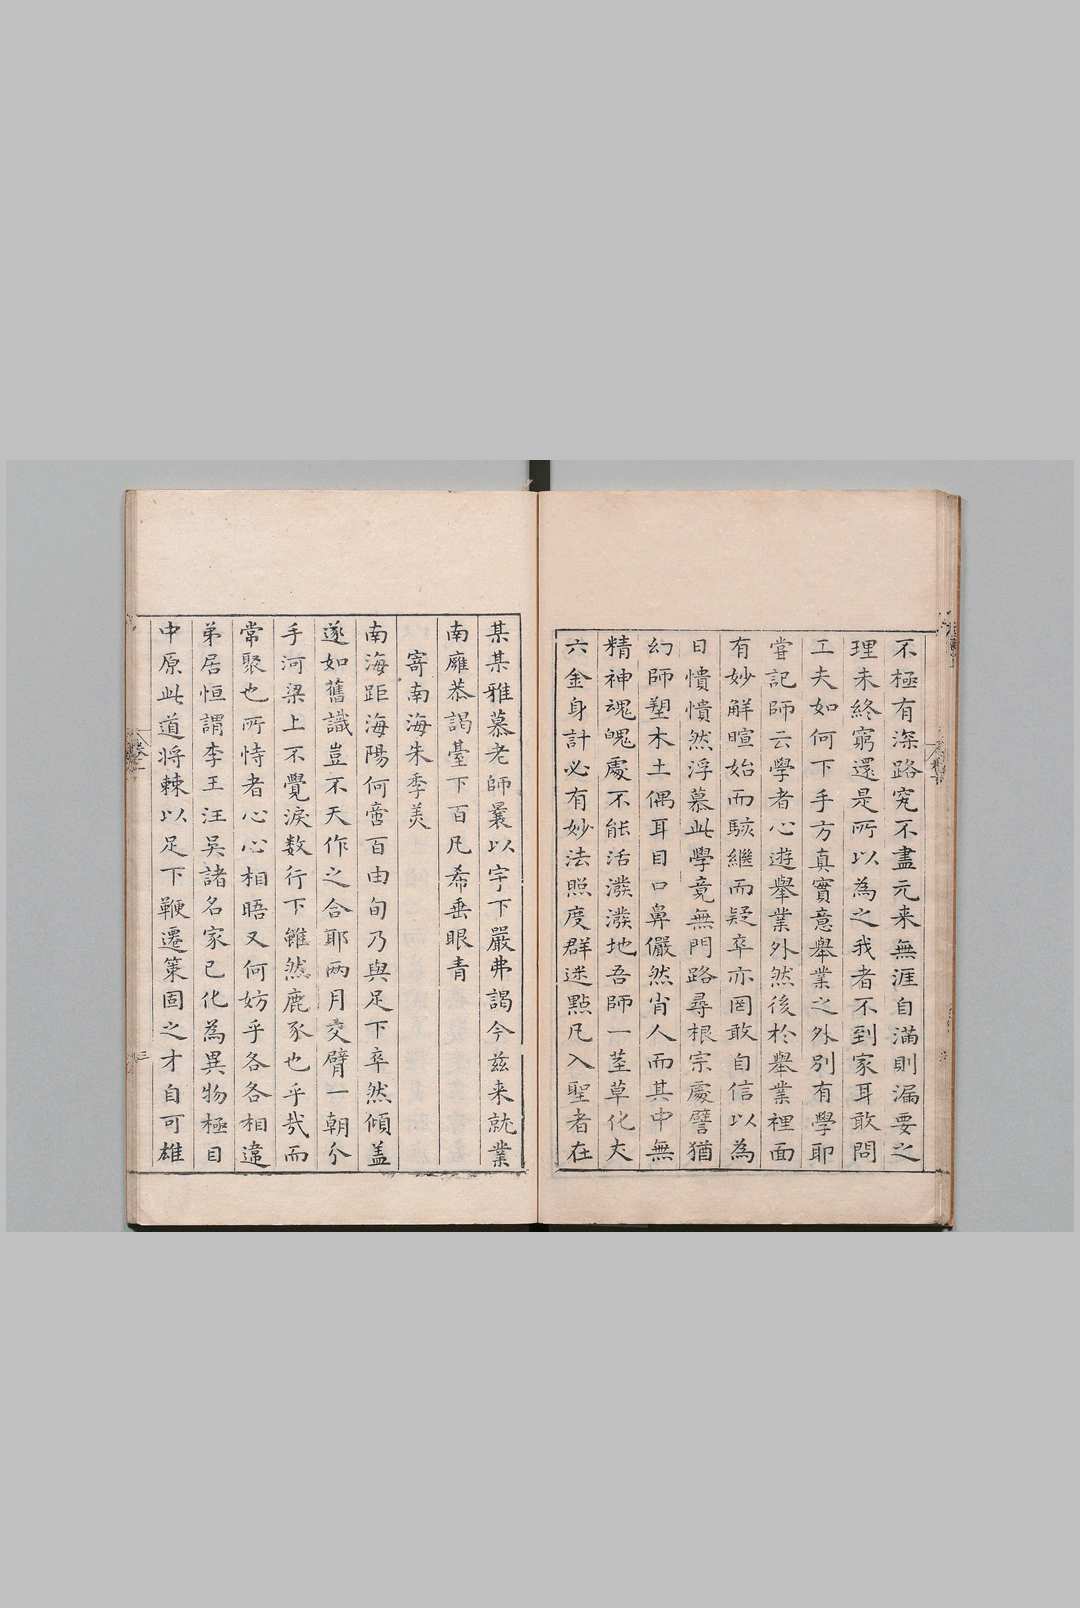 不極有深路究不盡元来無涯自滿則漏要之
理未終窮還是所以為之我者不到家耳敢問
工夫如何下手方真實意舉業之外別有學耶
嘗記師云學者心遊舉業外然後於舉業裡面
有妙解暄始而駭繼而疑卒亦罔敢自信以為
日憒憒然浮慕此學竟無門路尋根宗處譬猶
幻師塑木土偶耳目口鼻儼然肖人而其中無
精神魂魄處不能活潑潑地吾師一莖草化丈
六金身計必有妙法照度群迷點凡入聖者在
某某雅慕老師曩以宇下嚴弗謁今茲来就業
南廱恭謁臺下百凡希垂眼青
寄南海朱季美
南海距海陽何啻百由旬乃與足下卒然傾蓋
遂如舊識豈不天作之合耶兩月交臂一朝分
手河梁上不覺淚数行下雖然鹿豕也乎哉而
常聚也所恃者心心相晤又何妨乎各各相違
弟居恒謂李王汪吳諸名家已化為異物極目
中原此道将棘以足下鞭遷策固之才自可雄
卷一
三